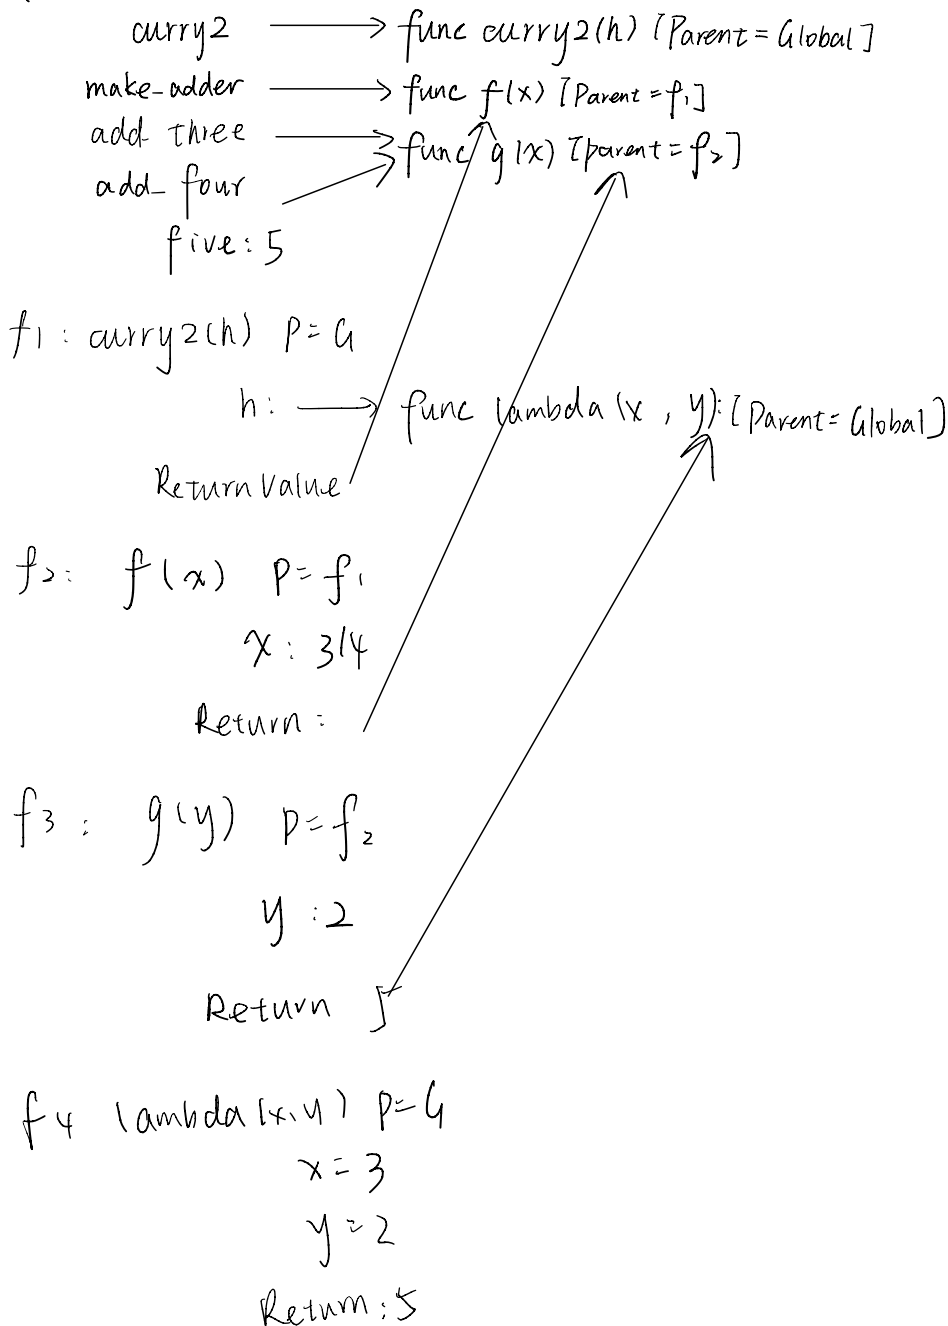 curry2 → func curry2(h) [Parent = Global]
make-adder → func f(x) [Parent = f1]
add three → func g(x) [parent = f2]
add_ four
five: 5
f1: curry2(h) P= G
h: → func lambda(x, y): [Parent= Global]
Return Value
f2: f(x) P= f1
x: 3/4
Return:
f3: g(y) P= f2
y: 2
Return 5
f4 lambda(x,y) P= G
x = 3
y = 2
Return: 5